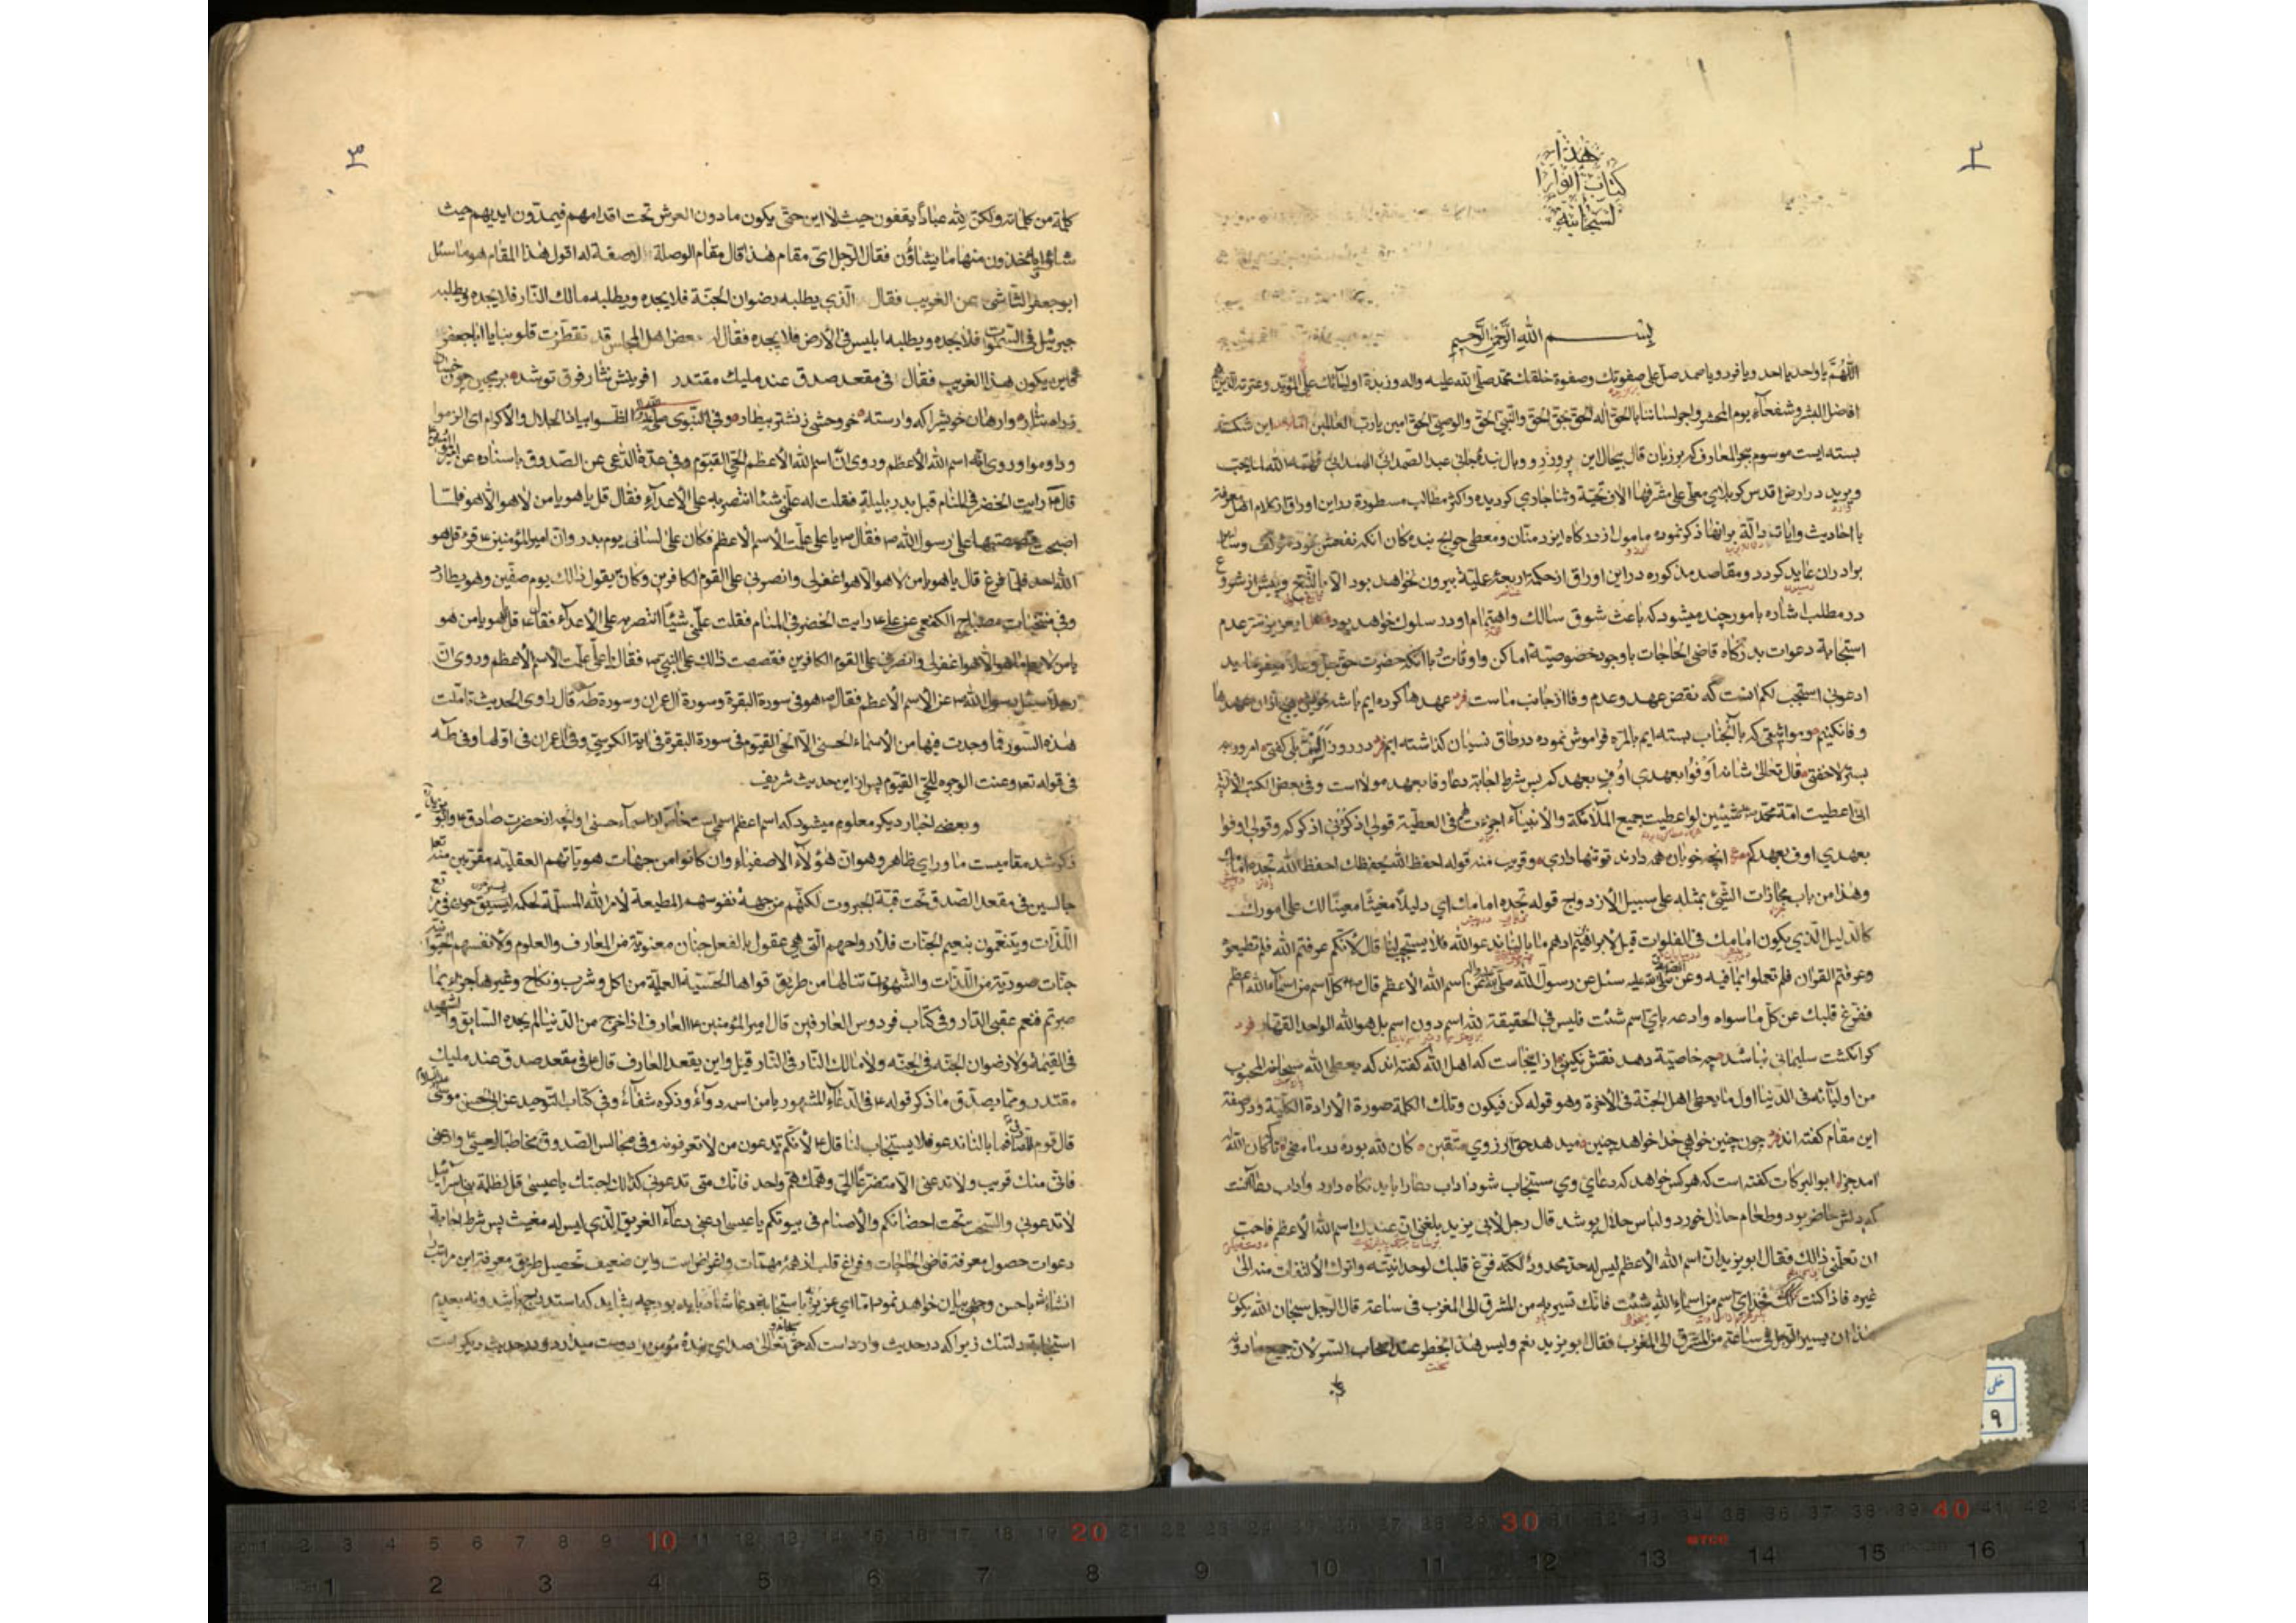 ٢
هذا
كتاب انوار ا
لسبحانية
بسم الله الرحمن الرحيم
اللهم يا واحد يا احد ويا فرد ويا صمد صل على صفوتك وصفوة خلقك محمد صلى الله عليه واله وزبدة اوليائك علي المؤيد وعترته الذين هم
افضل البشر وشفعاء يوم المحشر واجر لساننا بالحق اله الحق بحق الحق والنبي الحق والوصي الحق امين يا رب العالمين اما بعد اين شكسته
بسته ايست موسوم ببحر المعارف كه بر زبان قال بيحال اين پر وزر و وبال بنده جاني عبد الصمد الهمداني وفقه الله لما يحب
ويريد در ارض اقدس كربلاي معلى على مشرفها الاف تحية وثنا جاري كرديده واكثر مطالب مسطورة در اين اوراق از كلام اهل معرفة
با احاديث وايات دالة بر انها ذكر نموده مامول از دركاه ايزد منان ومعطي حوايج بندكان انكه نفعش بخود مؤلف وساير
برادران عايد كردد ومقاصد مذكوره در اين اوراق از حكمة اربعة عملية بيرون نخواهد بود الا بالتبع وپيش از شروع
در مطلب اشاره بامور چند ميشود كه باعث شوق سالك واهتمام او در سلوك خواهد بود فصل اي عزيز سر عدم
استجابة دعوات بدركاه قاضي الحاجات با وجود خصوصية اماكن واوقات با انكه حضرت حق جل وعلا ميفرمايد
ادعوني استجب لكم انست كه نقض عهد وعدم وفا از جانب ماست فرد عهدها كرده ايم با شه خويش هيچ از ان عهدها
وفا نكنيم ومواثيقي كه با آنجناب بسته ايم بالمره فراموش نموده در طاق نسيان كذاشته ايم فرد در روز الست بلى كفتي امروز به
بستر لا خفتي قال تعالى شانه اوفوا بعهدي اوف بعهدكم پس شرط اجابة دعا وفا بعهد مولا است وفي بعض الكتب الالهية
اني اعطيت امة محمد شيئين لو اعطيت جميع الملائكة والانبياء اجزءت لهم في العطية قولي اذكروني اذكركم وقولي اوفوا
بعهدي اوف بعهدكم ع انچه خوبان همه دارند تو تنها داري وقريب منه قوله احفظ الله يحفظك احفظ الله تجده امامك
وهذا من باب مجازات الشيء بمثله على سبيل الازدواج قوله تجده امامك اي دليلا مغيثا معينا لك على امورك
كالدليل الذي يكون امامك في الفلوات قيل لابراهيم ادهم ما بالنا ندعوا الله فلا يستجيب لنا قال لانكم عرفتم الله فلم تطيعوه
وعرفتم القران فلم تعملوا بما فيه سئل عن رسول الله صلى الله عليه واله عن اسم الله الاعظم قال كل اسم من اسماء الله اعظم
ففرغ قلبك عن كل ما سواه وادعه باي اسم شئت فليس في الحقيقة لله اسم دون اسم بل هو الله الواحد القهار فرد
كر انكشت سليماني نباشد چه خاصية دهد نقش نكيني از اينجاست كه اهل الله كفته اند كه يعطي الله سبحانه المحبوب
من اوليائه في الدنيا اول ما يعطي اهل الجنة في الاخرة وهو قوله كن فيكون وتلك الكلمة صورة الارادة الكلية ودر صفة
اين مقام كفته اند فرد چون چنين خواهي خدا خواهد چنين ميدهد حق ارزوي متقين كان لله بوده در ما مضى تا كه كان الله له
امد جزا ابو البركات كفته است كه هر كس خواهد كه دعاي وي مستجاب شود اداب دعا را بايد نكاه دارد واداب دعا انست
كه دلش حاضر بود وطعام حلال خورد ولباس حلال پوشد قال رجل لابي يزيد بلغني ان عندك اسم الله الاعظم فاحب
ان تعلمني ذلك فقال ابو يزيد ان اسم الله الاعظم ليس له حد محدود لكنه فرغ قلبك لوحدانيته واترك الالتفات منه الى
غيره فاذا كنت كذلك فخذ اي اسم من اسماء الله شئت فانك تسير به من المشرق الى المغرب في ساعة قال الرجل سبحان الله يكون
هذا ان يسير الرجل في ساعة من المشرق الى المغرب فقال ابو يزيد نعم وليس هذا بخطر عند اصحاب السؤلان جميع ما دونه
٣
كلمة من كلماته ولكن لله عبادا يقفون حيث لا اين حتى يكون ما دون العرش تحت اقدامهم فيمدون ايديهم حيث
شاؤا ياخذون منها ما يشاؤن فقال الرجل اي مقام هذا قال مقام الوصلة لا صفة له اقول هذا المقام هو ما سئل
ابو جعفر الشاشي عن الغريب فقال الذي يطلبه رضوان الجنة فلا يجده ويطلبه مالك النار فلا يجده ويطلبه
جبرئيل في السموات فلا يجده ويطلبه ابليس في الارض فلا يجده فقال له بعض اهل المجلس قد تفطرت قلوبنا يا ابا جعفر
فاين يكون هذا الغريب فقال في مقعد صدق عند مليك مقتدر افرينش نثار فرق تو شد برمچين چون خسان
ز راه نثار وارهان خويش را كه وارسته خر وحشي ز نشتر بيطار وفي النبوي الظوا بياذا الجلال والاكرام اي الزموا
وداوموا وروي انه اسم الله الاعظم وروي ان اسم الله الاعظم الحي القيوم وفي عدة الداعي عن الصدوق باسناده عن امير المؤمنين
قال رايت الخضر في المنام قبل بدر بليلة فقلت له علمني شيئا انتصر به على الاعداء فقال قل يا هو يا من لا هو الا هو فلما
اصبحت قصصتها على رسول الله فقال يا علي علمت الاسم الاعظم فكان على لساني يوم بدر وان امير المؤمنين قرء قل هو
الله احد فلما فرغ قال يا هو يا من لا هو الا هو اغفر لي وانصرني على القوم الكافرين وكان يقول ذلك يوم صفين وهو يطارد
وفي منتخبات مصباح الكفعمي عن علي رايت الخضر في المنام فقلت علمني شيئا انتصر به على الاعداء فقال قل يا هو يا من هو
يا من لا يعلم ما هو الا هو اغفر لي وانصرني على القوم الكافرين فقصصت ذلك على النبي فقال يا علي علمت الاسم الاعظم وروي ان
رجلا سئل رسول الله عن الاسم الاعظم فقال هو في سورة البقرة وسورة ال عمران وسورة طه قال راوي الحديث تاملت
هذه السور فما وجدت فيها من الاسماء الحسنى الا الحي القيوم في سورة البقرة في اية الكرسي وفي ال عمران في اولها وفي طه
في قوله تع وعنت الوجوه للحي القيوم پس از اين حديث شريف
وبعض اخبار ديكر معلوم ميشود كه اسم اعظم اسمي است خاص از اسماء حسنى وانچه از حضرت صادق وابو يزيد
ذكر شد مقاميست ماوراي ظاهر وهو ان هؤلاء الاصفياء وان كانوا من جهات هوياتهم العقلية مقربين منه تع
جالسين في مقعد الصدق تحت قبة الجبروت لكنهم من جهة نفوسهم المطيعة لامر الله المسلمة لحكمه
اللذات ويتنعمون بنعيم الجنات فلارواحهم التي هي عقول بالفعل جنان معنوية من المعارف والعلوم ولانفسهم الحيوانية
جنات صورية من اللذات والشهوات تنالها من طريق قواها الحسية العملية من اكل وشرب ونكاح وغيرها جزاء بما
صبرتم فنعم عقبى الدار وفي كتاب فردوس العارفين قال امير المؤمنين العارف اذا خرج من الدنيا لم يجده السابق والشهيد
في القيمة ولا رضوان الجنة في الجنة ولا مالك النار في النار قيل واين يقعد العارف قال في مقعد صدق عند مليك
مقتدر ومما يصدق ما ذكر قوله في الدعاء المشهور يا من اسمه دواء وذكره شفاء وفي كتاب التوحيد عن ابي الحسن موسى
قال قوم للصادق ما بالنا ندعو فلا يستجاب لنا قال لانكم تدعون من لا تعرفونه وفي مجالس الصدوق مخاطبا لعيسى وادعني
فاني منك قريب ولا تدعني الا متضرعا الي وهمك هم واحد فانك متى تدعوني كذلك اجبتك يا عيسى قل لظلمة بني اسرائيل
لا تدعوني والسحت تحت احضانكم والاصنام في بيوتكم يا عيسى ادعني دعاء الغريق الذي ليس له مغيث پس شرط اجابة
دعوات حصول معرفة قاضي الحاجات وفراغ قلب از همه مهمات واغراض است واين ضعيف تحصيل طريق معرفة اين مراتب را
انشاء الله باحسن وجهي بيان خواهد نمود اما اي عزيز باستجابة دعا شاد نبايد بود چه بشايد كه استدراج باشد ونه بعدم
استجابة دلتنك زيرا كه در حديث وارد است كه حق تعالى صداي بنده مؤمن را دوست ميدارد ودر حديث ديكر است
خطى
٩